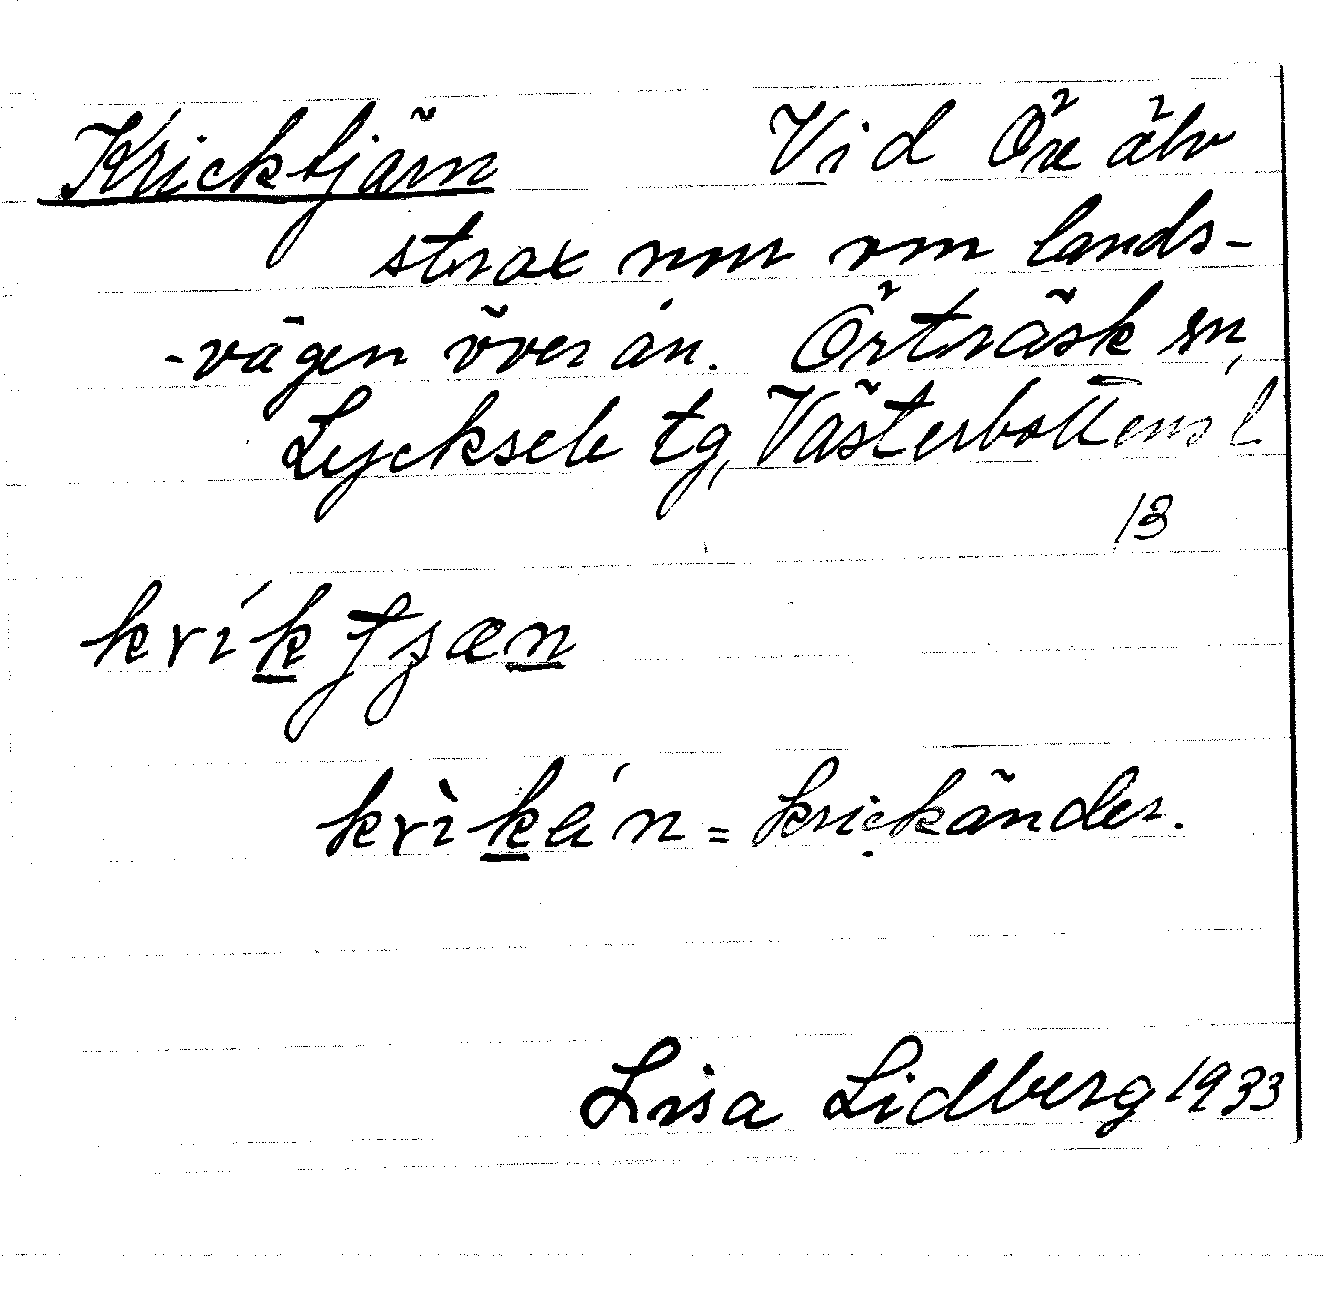 Kricktjärn Vid Öre älv
strax norr om lands-
-vägen över ån. Örträsk sn,
Lycksele tg, Västerbottens l
13
kríḵ tjæṉ
krìḵán = krickänder.
Lisa Lidberg 1933